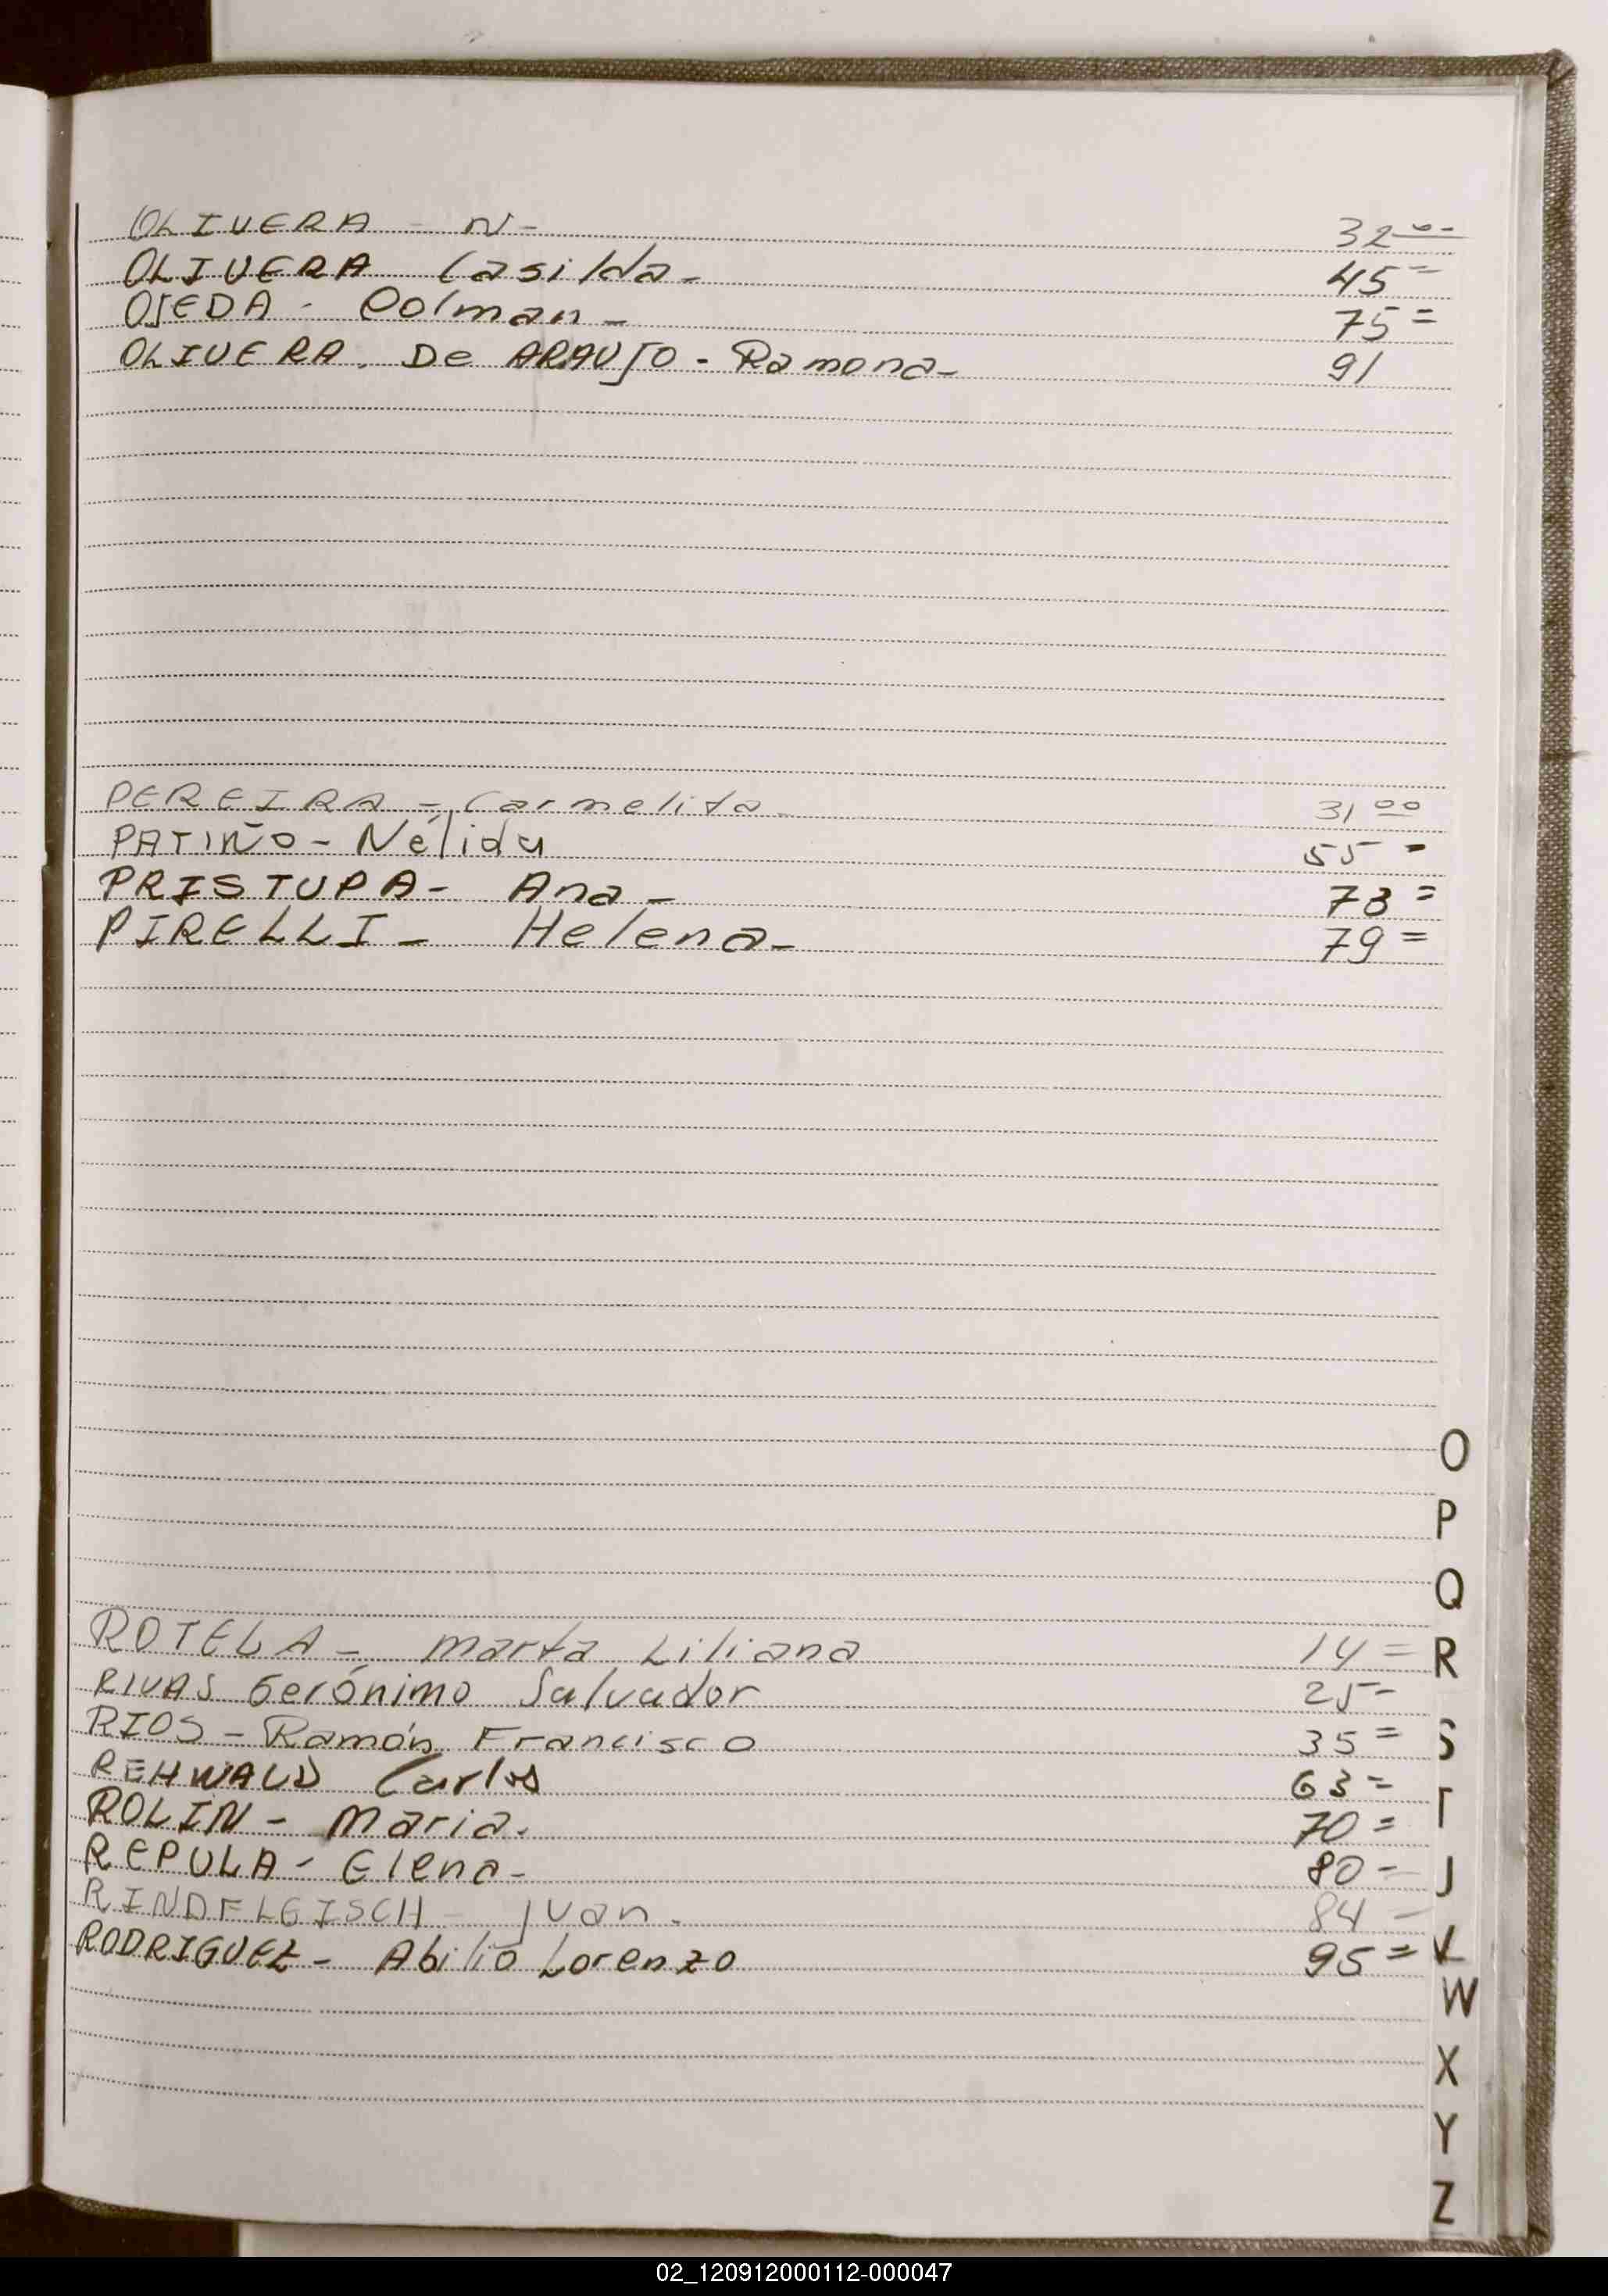 OLIVERA - N - 32 00
OLIVERA Casilda - 45 =
OJEDA - Colman - 75 =
OLIVERA. De ARAUJO - Ramona - 91
PEREIRA - Carmelita - 31 00
PATIÑO - Nélida 55 -
PRISTUPA - Ana - 73 =
PIRELLI - Helena - 79 =
O
P
Q
ROTELA - Marta Liliana 14 = R
RIVAS Gerónimo Salvador 25 -
RIOS - Ramón Francisco 35 = S
REHWALD Carlos 63 =
ROLIN - Maria. 70 = T
REPULA - Elena - 80 = J
RINDFLEISCH - Juan. 84 -
RODRIGUEZ - Abilio Lorenzo 95 = V
W
X
Y
Z
02_120912000112-000047